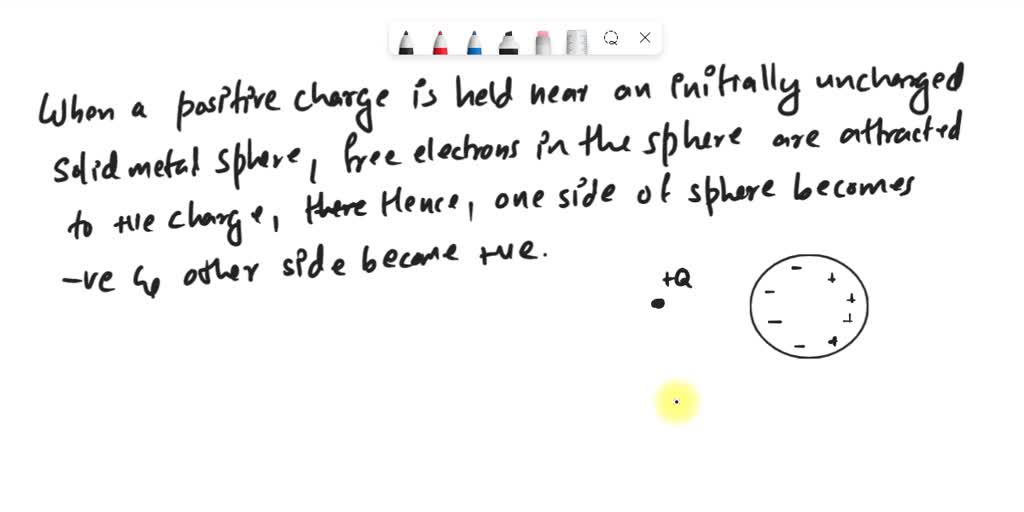 When a positive charge is held near an initially uncharged
solid metal sphere, free electrons in the sphere are attracted
to +ve charge, there Hence, one side of sphere becomes
-ve & other side become +ve.
+Q
- +
- +
- +
- +